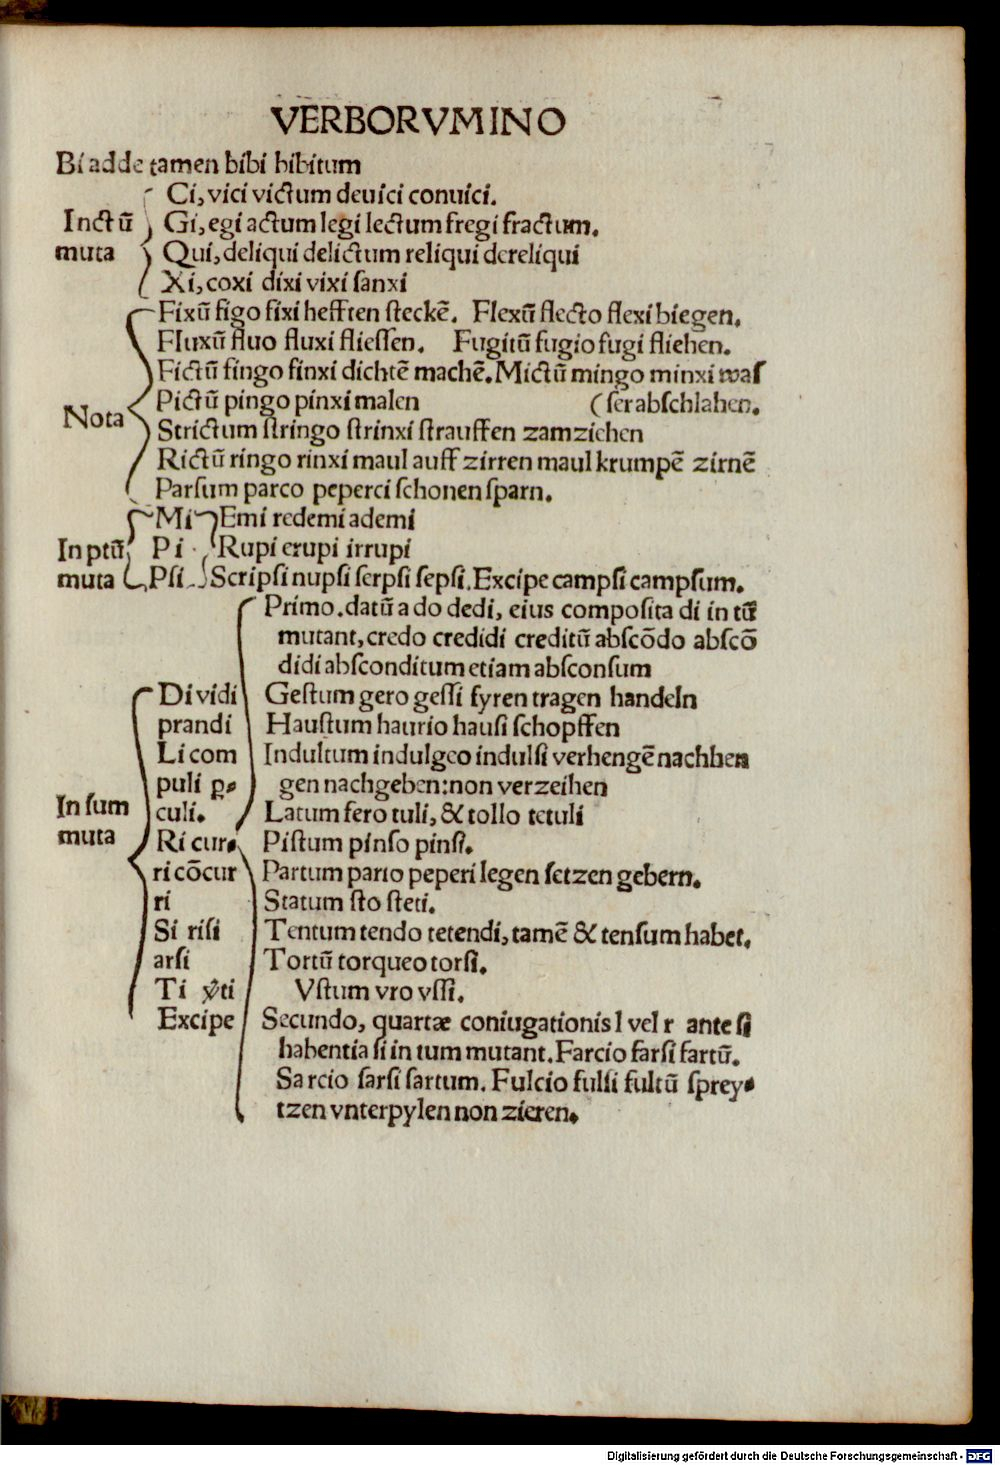 VERBORVMINO
Bi adde tamen bibi bibitum
Ci, vici victum deuici conuici.
Inctū Gi, egi actum legi lectum fregi fractum.
muta Qui, deliqui delictum reliqui dereliqui
Xi, coxi dixi vixi ſanxi
Fixū figo fixi hefften ſteckē. Flexū flecto flexi biegen.
Fluxū fluo fluxi flieſſen. Fugitū fugio fugi fliehen.
Fictū fingo finxi dichtē machē. Mictū mingo minxi waſ
Nota Pictū pingo pinxi malen (ſerabſchlahen.
Strictum ſtringo ſtrinxi ſtrauffen zamziehen
Rictū ringo rinxi maul auff zirren maul krumpē zirnē
Parſum parco peperci ſchonen ſparn.
Mi Emi redemi ademi
In ptū Pi Rupi erupi irrupi
muta Pſi Scripſi nupſi ſerpſi ſepſi. Excipe campſi campſum.
Primo. datū a do dedi, eius compoſita di in tū
mutant, credo credidi creditū abſcōdo abſcō
didi abſconditum etiam abſconſum
Di vidi Geſtum gero geſſi fyren tragen handeln
prandi Hauſtum haurio hauſi ſchopffen
Li com Indultum indulgeo indulſi verhengē nachhen
puli ꝑ gen nachgeben: non verzeihen
In ſum culi. Latum fero tuli, & tollo tetuli
muta Ri cur Piſtum pinſo pinſi.
ri cōcur Partum pario peperi legen ſetzen gebern.
ri Statum ſto ſteti.
Si riſi Tentum tendo tetendi, tamē & tenſum habet.
arſi Tortū torqueo torſi.
Ti ti Vſtum vro vſſi.
Excipe Secundo, quartæ coniugationis l vel r ante ſi
habentia ſi in tum mutant. Farcio farſi fartū.
Sarcio ſarſi ſartum. Fulcio fulſi fultū ſprey
tzen vnterpylen non zieren.
Digitalisierung gefördert durch die Deutsche Forschungsgemeinschaft - DFG